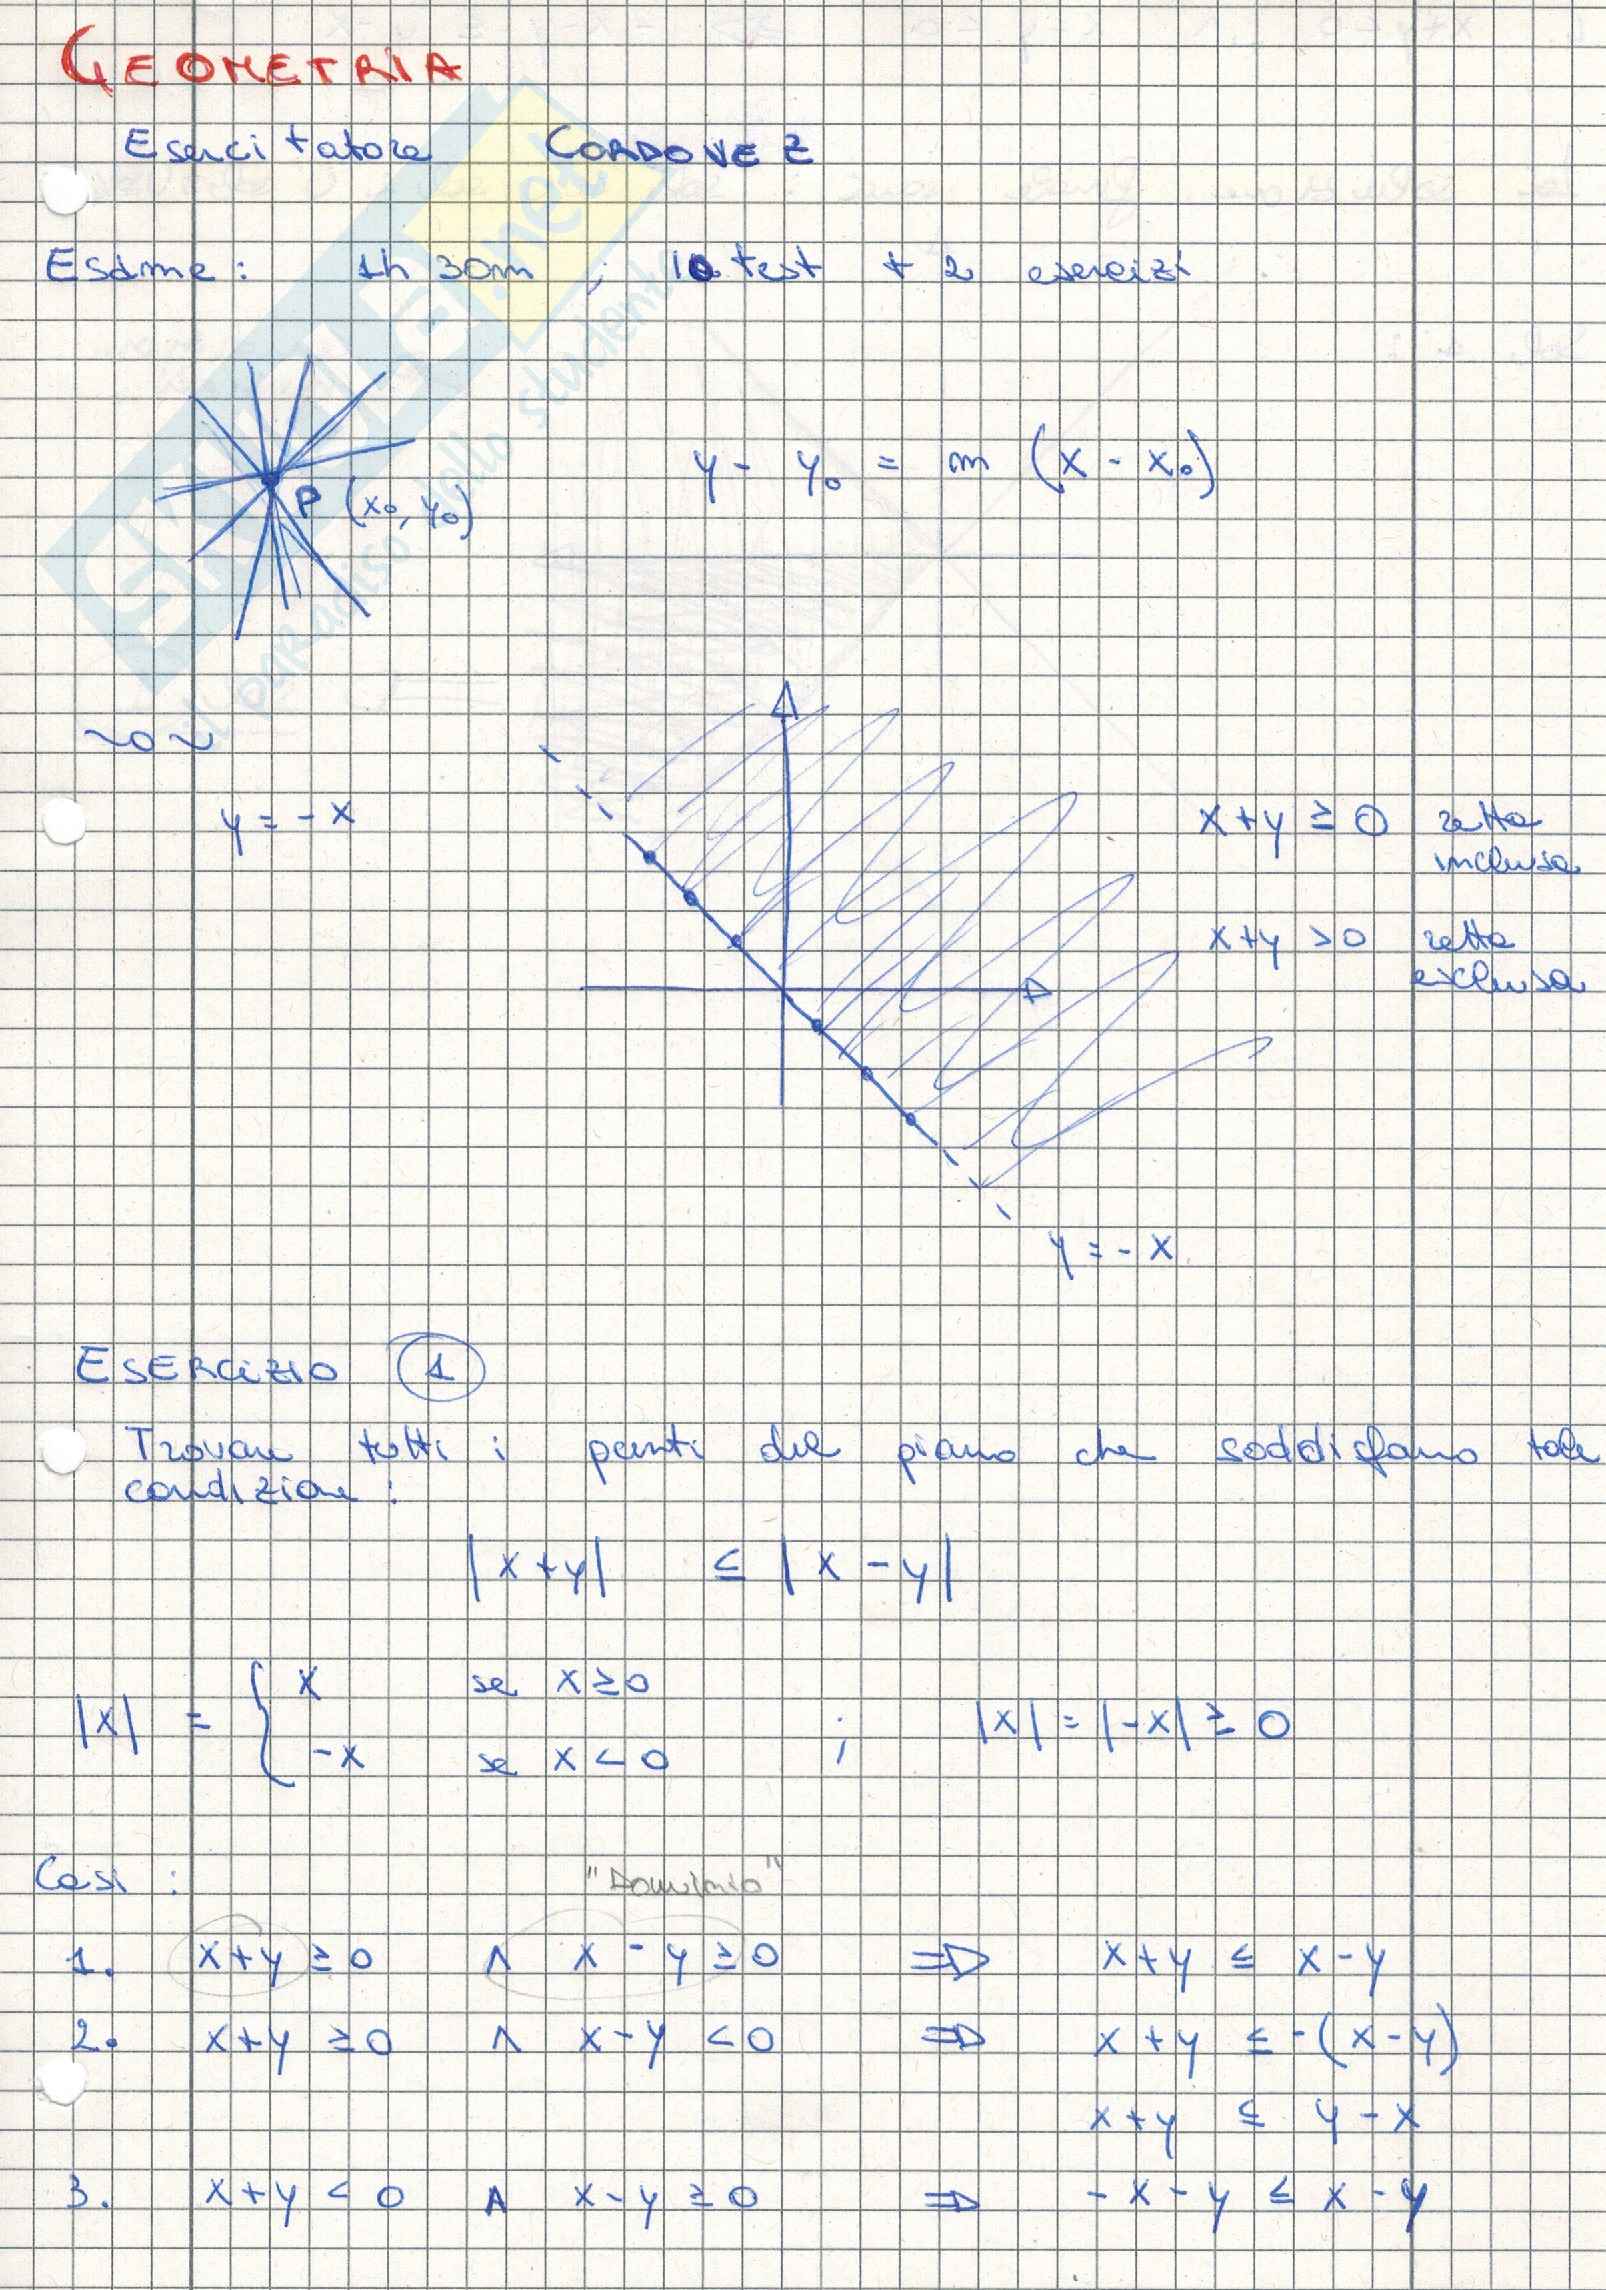 GEOMETRIA
Esercitatore CORDOVEZ
Esame: 1h 30m ; 10 test + 2 esercizi
y - y₀ = m (x - x₀)
P (x₀, y₀)
~o~
y = - x
x+y ≥ 0 retta
inclusa
x+y > 0 retta
esclusa
y = - x
ESERCIZIO 1
Trovare tutti i punti del piano che soddisfano tale
condizione:
|x+y| ≤ |x-y|
|x| = { x se x≥0 ; |x| = |-x| ≥ 0
-x se x<0
Casi : "Dominio"
1. x+y ≥ 0 ∧ x - y ≥ 0 ⇒ x+y ≤ x-y
2. x+y ≥ 0 ∧ x-y < 0 ⇒ x+y ≤ -(x-y)
x+y ≤ y-x
3. x+y < 0 ∧ x-y ≥ 0 ⇒ -x-y ≤ x-y
SKUOLA.net
il paradiso dello studente